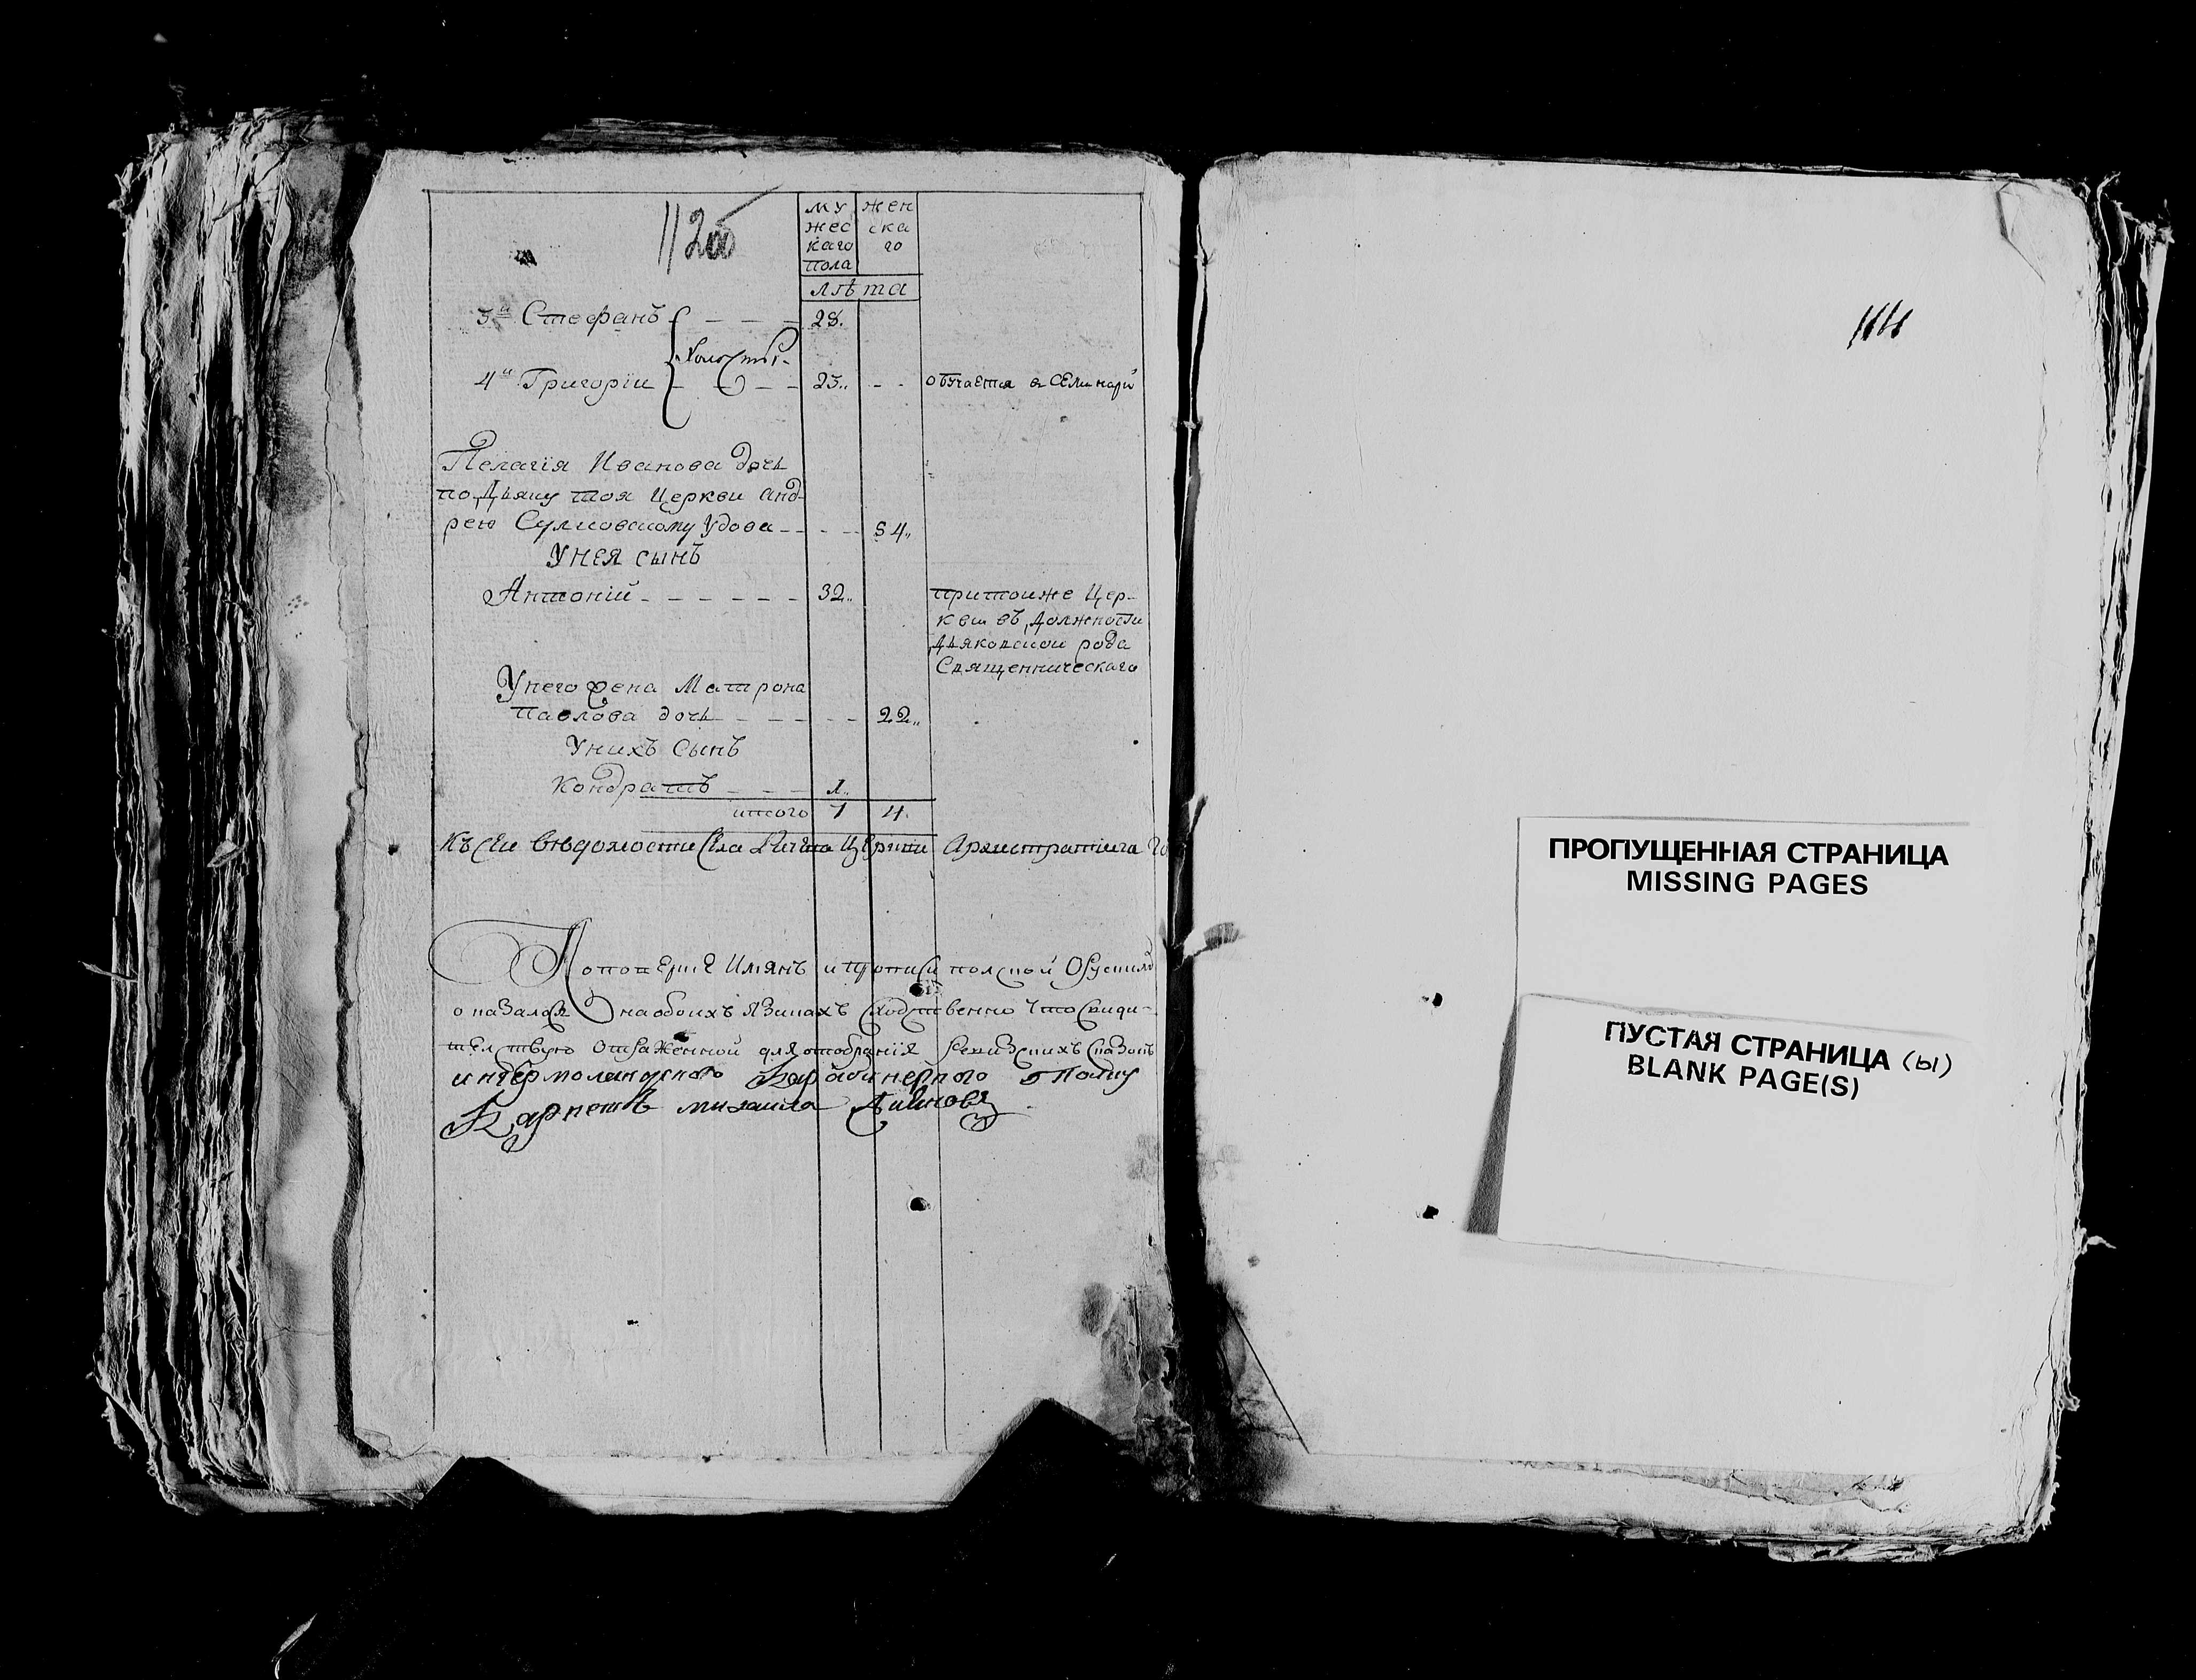 112об
му жен
жес ска
каго го
пола
лѣта
3й Стефанъ - - - 28.
холостъ
4й Григорїи - - - 23.. - - обучаетца в семинарїи
Пелагїя Иванова дочь
по дьяку тоя Церкви Анд-
рею Сулковскому удова - - - - 54..
У нея сынъ
Антонїй - - - - - - 32.. при тоиже Цер-
кви въ должности
дьяковскои рода
Священническаго
У него жена Матрона
Павлова дочь - - - - - 22..
У нихъ сынъ
Кондратъ - - - 1..
итого 7 4.
Къ сеи вѣдомости села церкви Архистратига
По поверке имянъ и прописи полской с рускимъ
оказалося на обоихъ языкахъ сходственно что свиди-
телствую отряженной для отобранїя ревизскихъ сказокъ
карабинерного полку
Карнетъ михаила
114
ПРОПУЩЕННАЯ СТРАНИЦА
MISSING PAGES
ПУСТАЯ СТРАНИЦА (Ы)
BLANK PAGE(S)